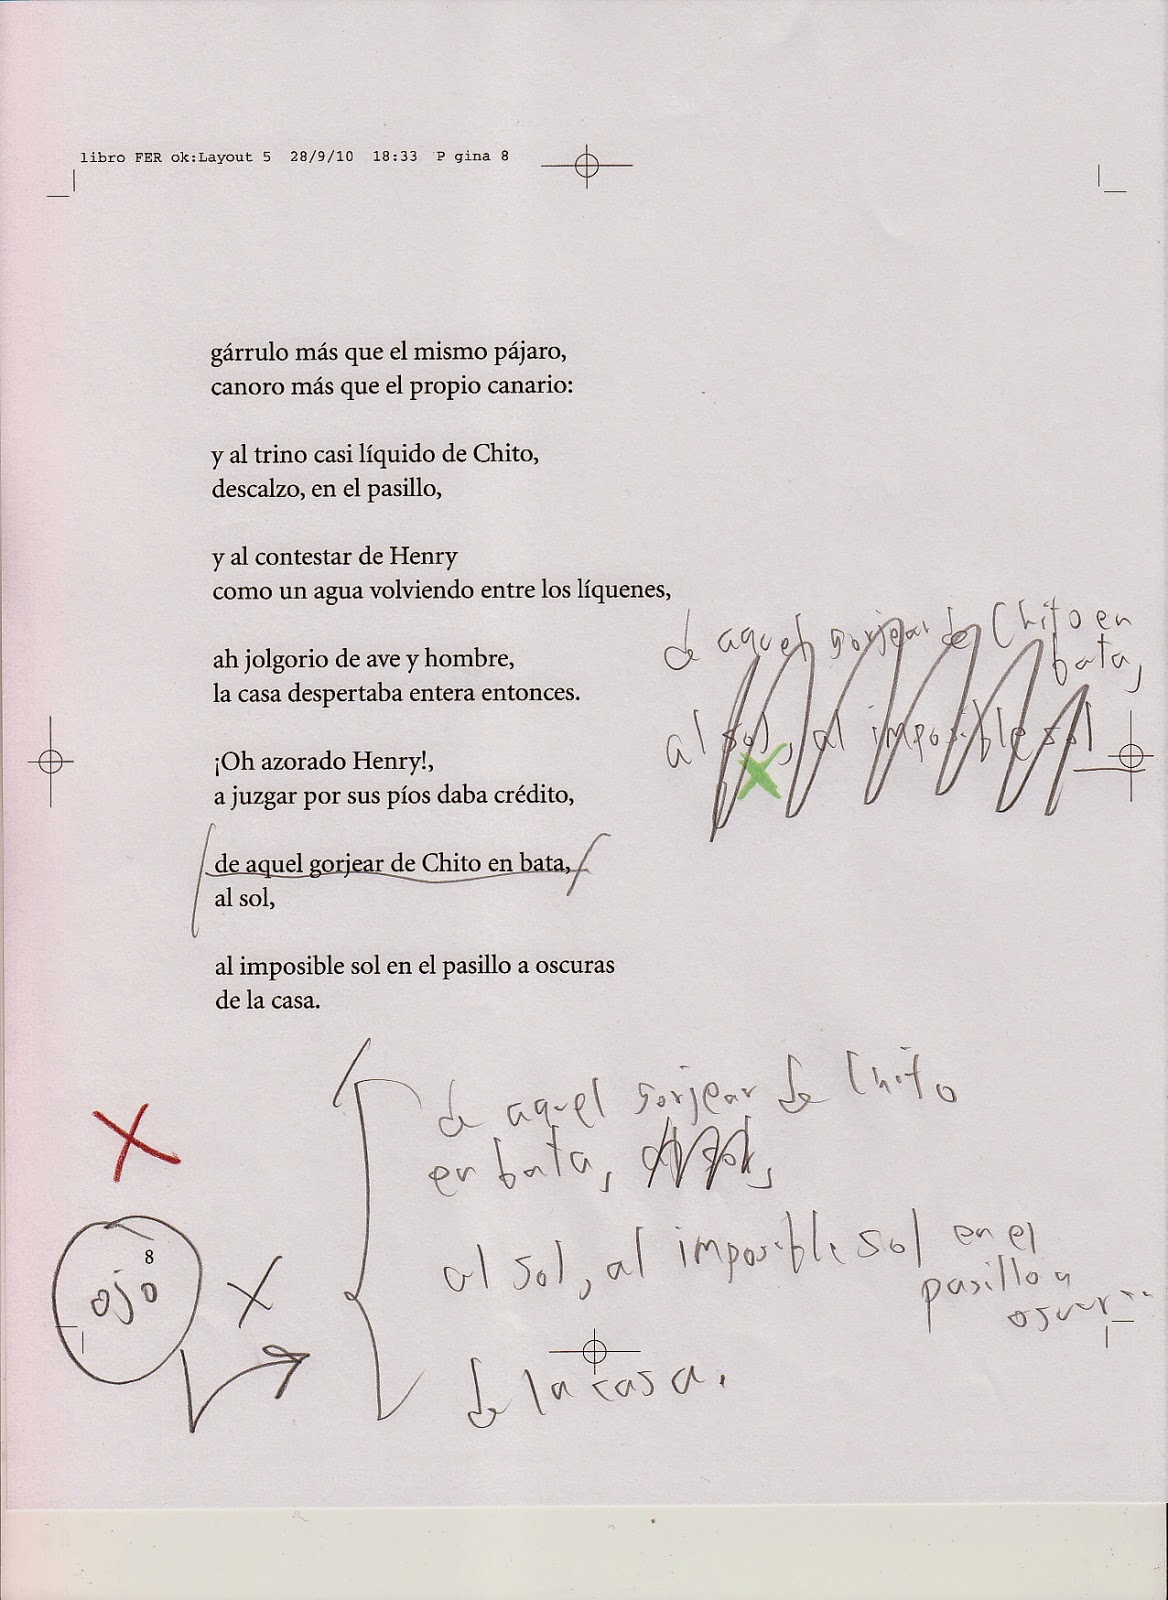 libro FER ok:Layout 5 28/9/10 18:33 P gina 8
gárrulo más que el mismo pájaro,
canoro más que el propio canario:
y al trino casi líquido de Chito,
descalzo, en el pasillo,
y al contestar de Henry
como un agua volviendo entre los líquenes,
ah jolgorio de ave y hombre,
la casa despertaba entera entonces.
¡Oh azorado Henry!,
a juzgar por sus píos daba crédito,
de aquel gorjear de Chito en bata,
al sol,
al imposible sol en el pasillo a oscuras
de la casa.
de aquel gorjear de Chito en
bata,
al sol, al imposible sol
de aquel gorjear de Chito
en bata, al sol,
al sol, al imposible sol en el
pasillo a
oscur
de la casa.
8
ojo